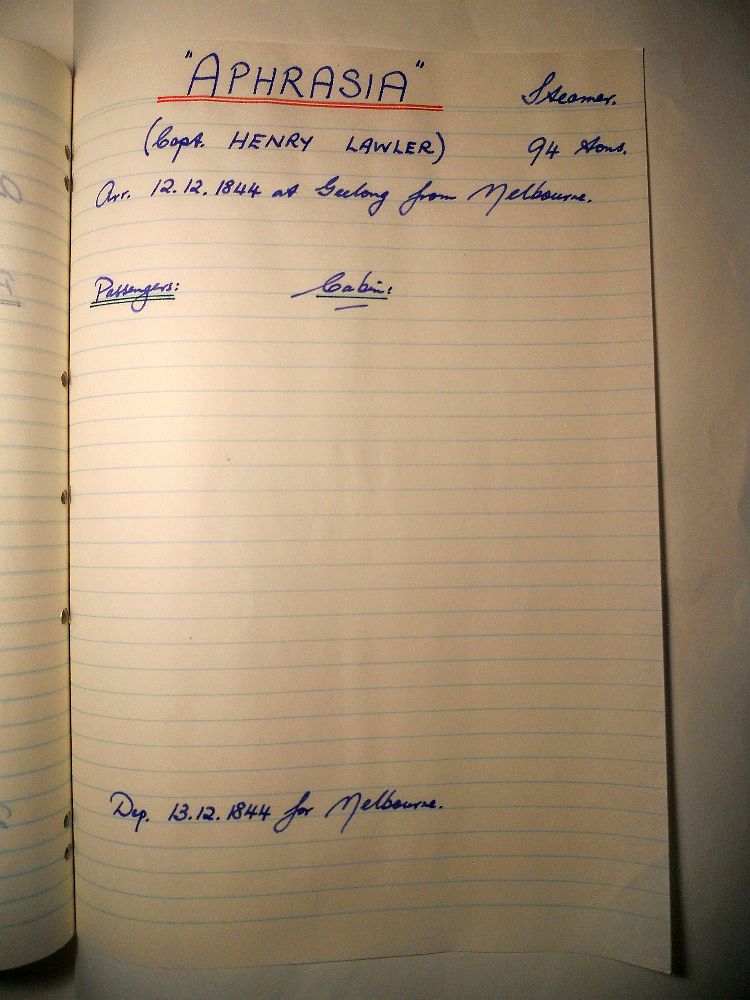 "APHRASIA" Steamer.
(Capt. HENRY LAWLER) 94 tons.
Arr. 12.12.1844 at Geelong from Melbourne.
Passengers: Cabin:
Dep. 13.12.1844 for Melbourne.